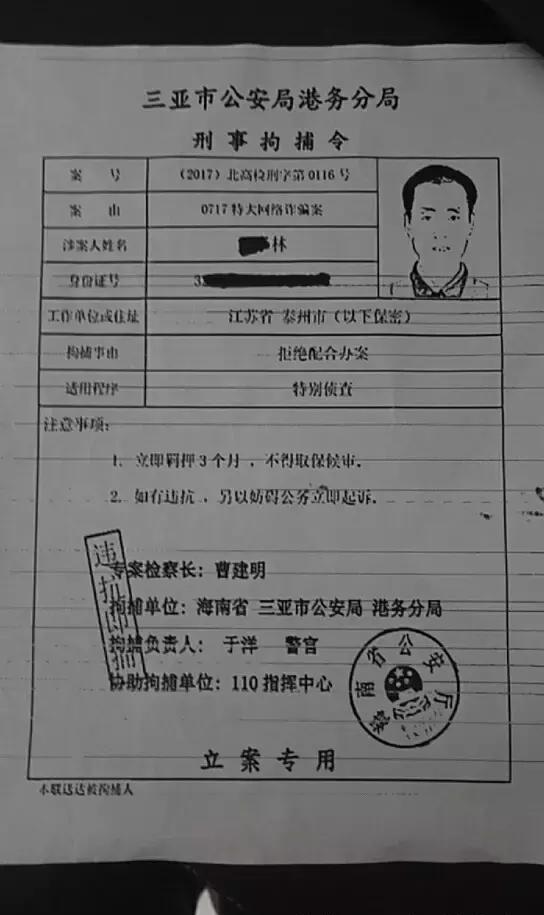 三亚市公安局港务分局
刑事拘捕令
案 号 （2017）北高检刑字第0116号
案 由 0717特大网络诈骗案
涉案人姓名 林
身份证号 3
工作单位或住址 江苏省 泰州市（以下保密）
拘捕事由 拒绝配合办案
适用程序 特别侦查
注意事项：
1. 立即羁押3个月，不得取保候审.
2. 如有违抗，另以妨碍公务立即起诉.
违抗即捕
专案检察长：曹建明
拘捕单位：海南省 三亚市公安局 港务分局
拘捕负责人： 于洋 警官
协助拘捕单位：110指挥中心
海南省公安厅
立案专用
本联送达被拘捕人